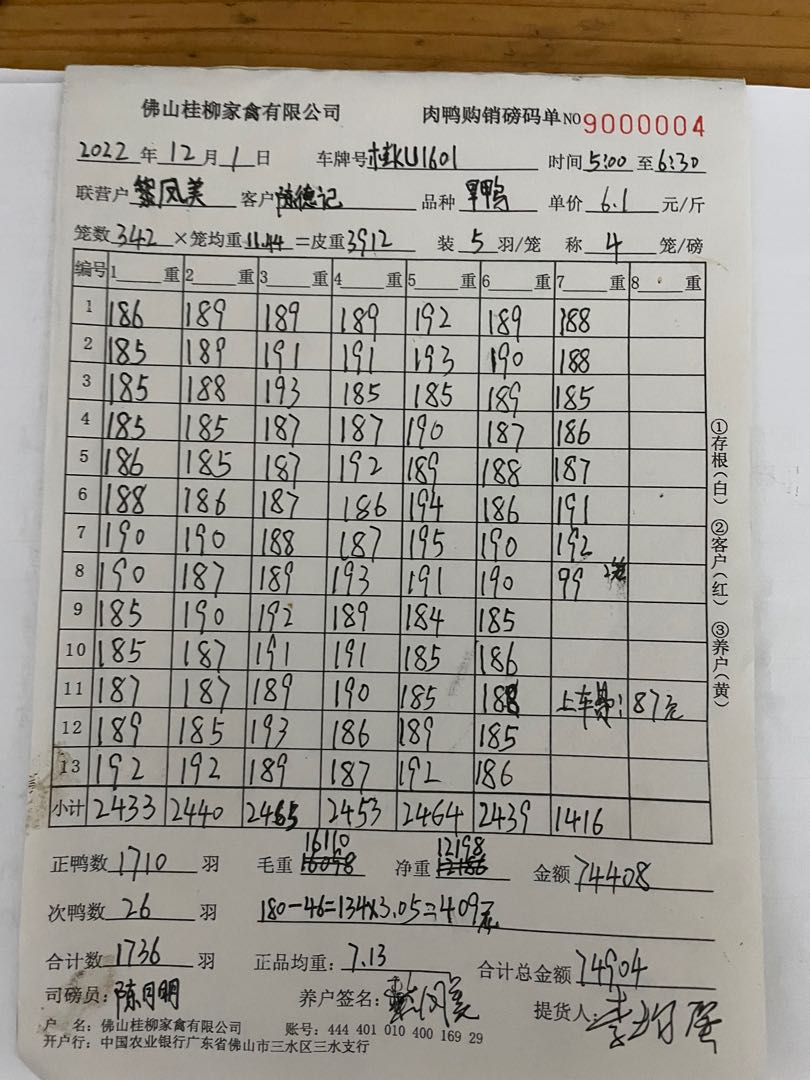 佛山桂柳家禽有限公司 肉鸭购销磅码单 NO 9000004
2022 年 12 月 1 日 车牌号 桂KU1601 时间 5:00 至 6:30
联营户 黎凤美 客户 陈德记 品种 旱鸭 单价 6.1 元/斤
笼数 342 ×笼均重 11.44 =皮重 3912 装 5 羽/笼 称 4 笼/磅
编号 1 重 2 重 3 重 4 重 5 重 6 重 7 重 8 重
1 186 189 189 189 192 189 188
2 185 189 191 191 193 190 188
3 185 188 193 185 185 189 185
4 185 185 187 187 190 187 186
5 186 185 187 192 189 188 187
6 188 186 187 186 194 186 191
7 190 190 188 187 195 190 192
8 190 187 189 193 191 190 99
9 185 190 192 189 184 185
10 185 187 191 191 185 186
11 187 187 189 190 185 188 上车费: 87元
12 189 185 193 186 189 185
13 192 192 189 187 192 186
小计 2433 2440 2465 2453 2464 2439 1416
①存根(白) ②客户(红) ③养户(黄)
16110 12198
正鸭数 1710 羽 毛重 16098 净重 12186 金额 74408
次鸭数 26 羽 180-46=134×3.05=409元
合计数 1736 羽 正品均重: 7.13 合计总金额 74904
司磅员: 陈月明 养户签名: 提货人:
户 名: 佛山桂柳家禽有限公司 账号: 444 401 010 400 169 29
开户行: 中国农业银行广东省佛山市三水区三水支行